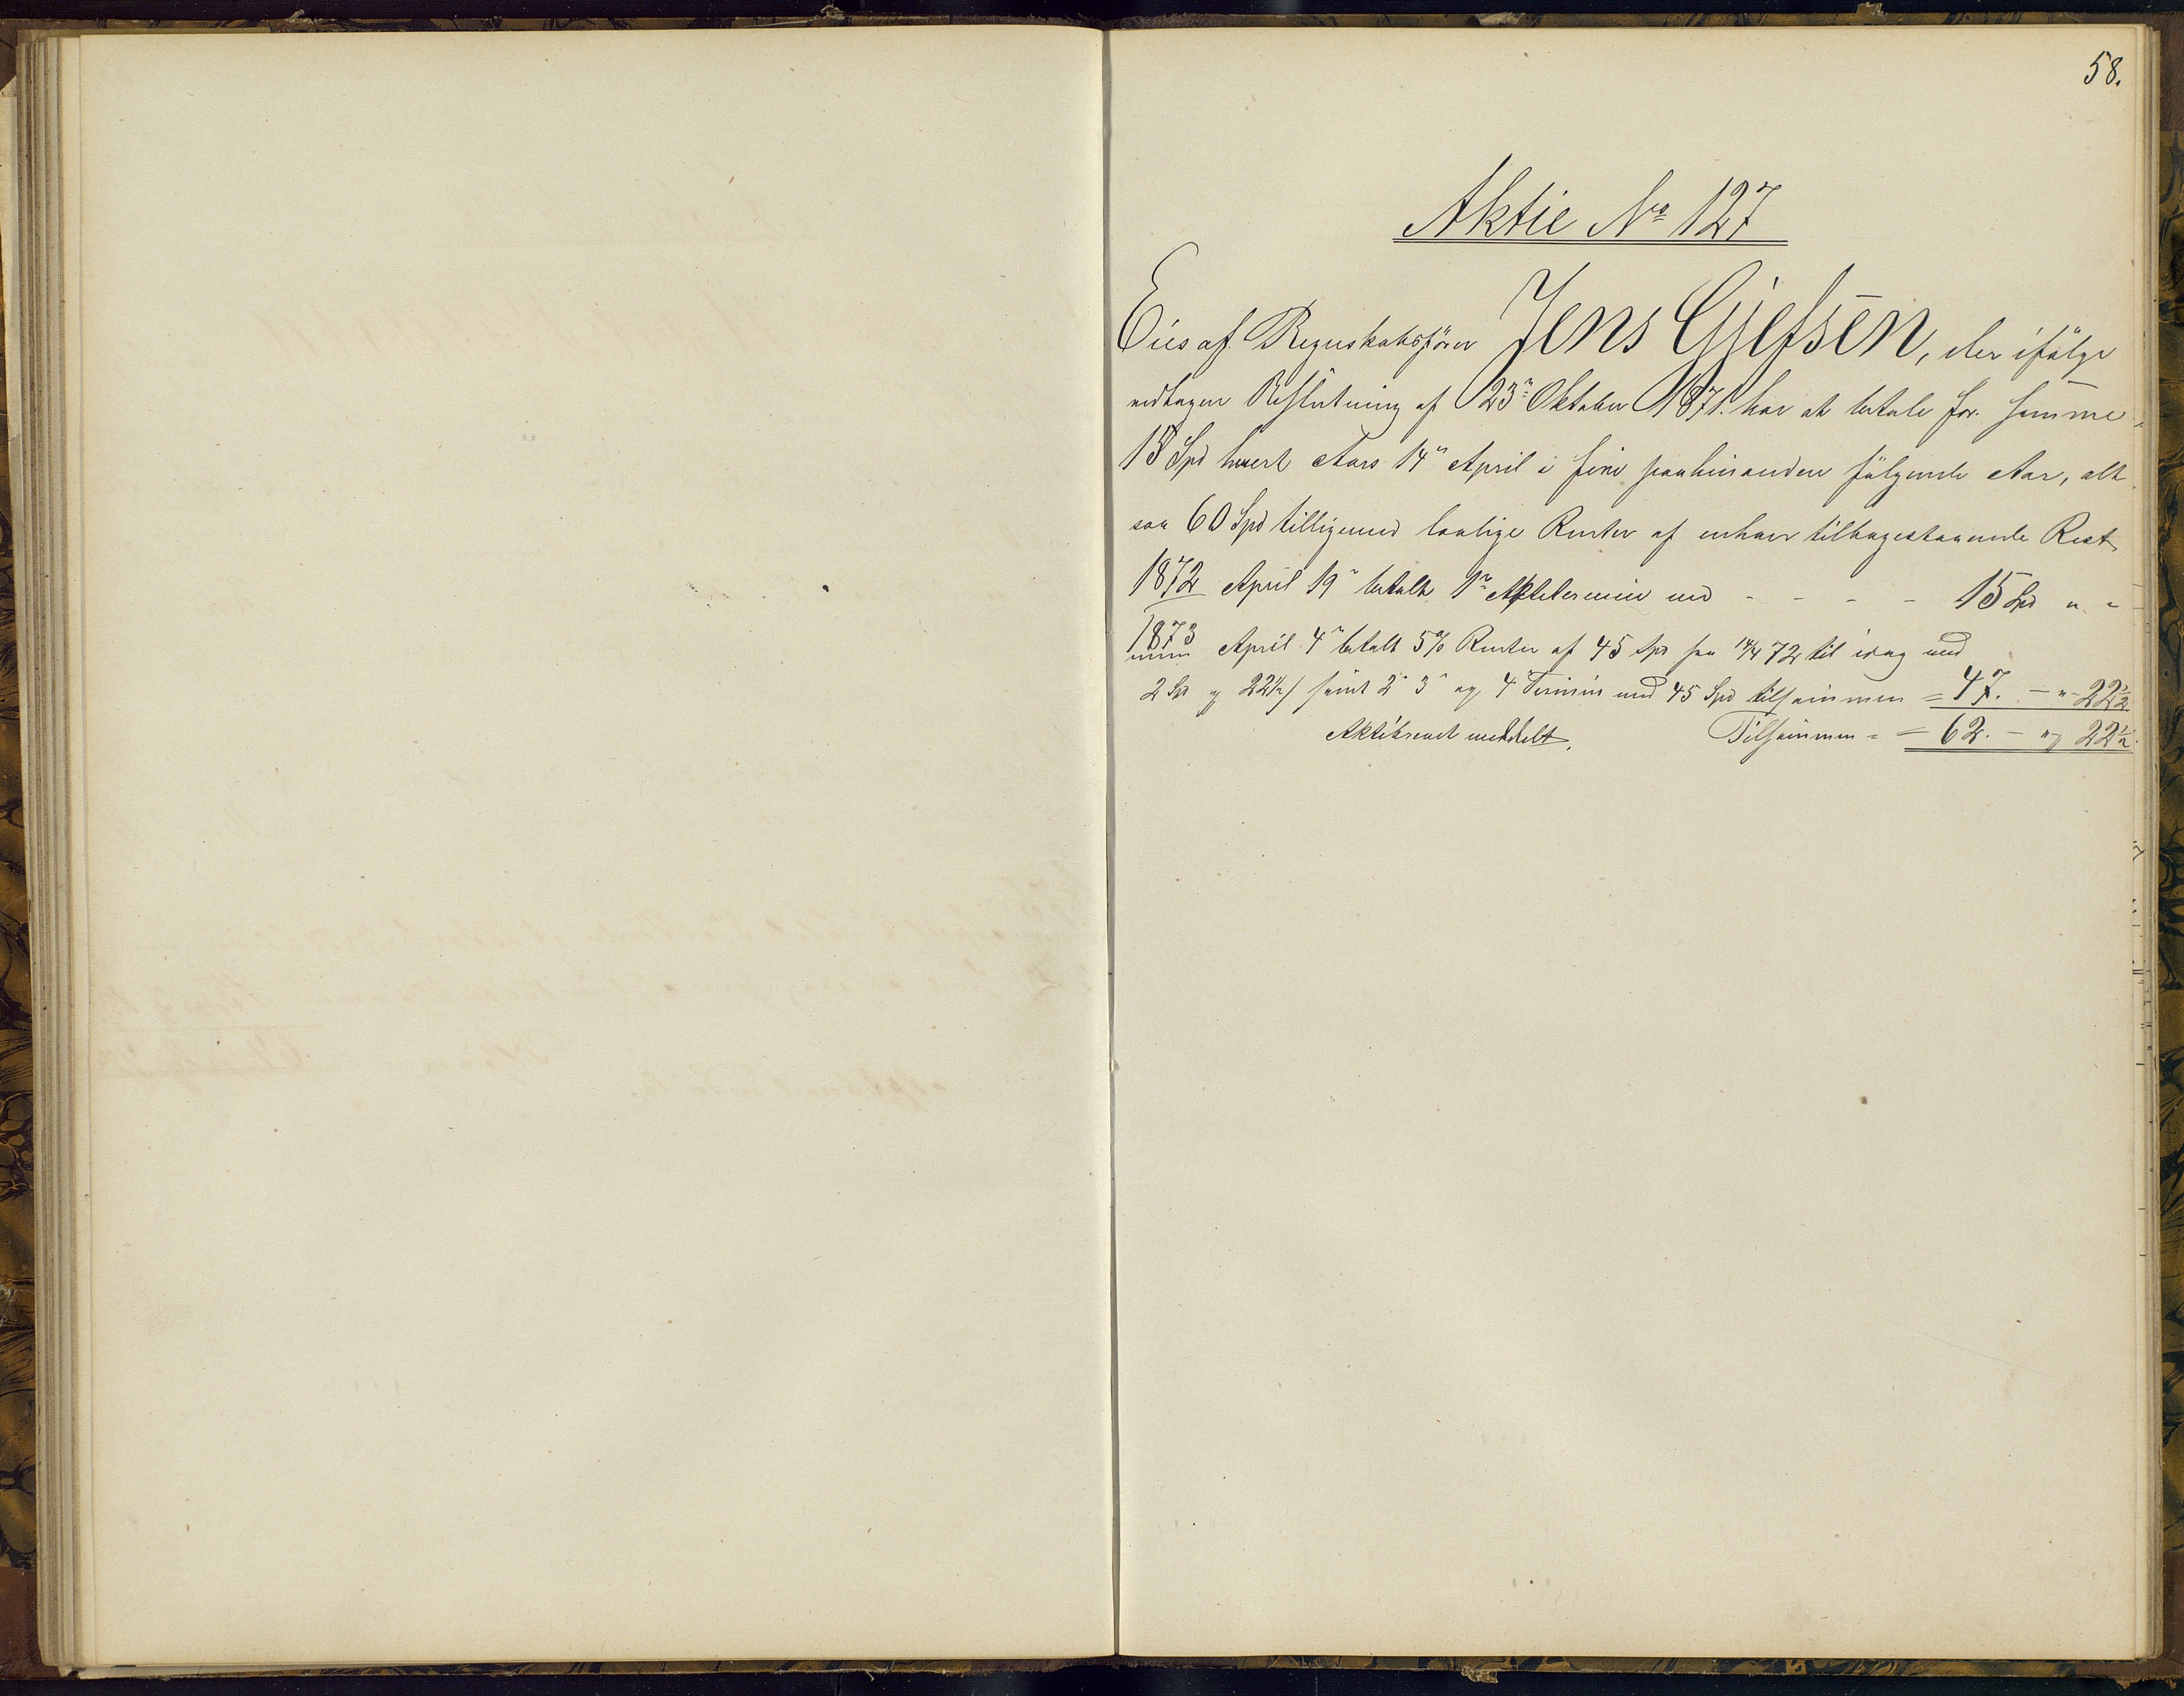 58.
Aktie No 127
Eies af Regnskabsfører Jens Gjefsen, der ifølge
vedtagen Beslutning af 23de Oktober 1871. har at betale for samme
15 Spd hvert Aars 14de April i fire paahinanden følgende Aar, alt
saa 60 Spd tilligemed lovlige Renter af enhver tilbagestaaende Rest.
1872 April 19de betalt 1ste Aktietermin med - - - - 15 Spd " "
1873 April 4de betalt 5% Renter af 45 Spd fra 14/4 72 til idag med
2 Spd og 22½ s samt 2den 3de og 4de Termin med 45 Spd tilsammen = 47. - " - 22½
Aktiebrevet meddelt. Tilsammen = = 62. - " 22½.